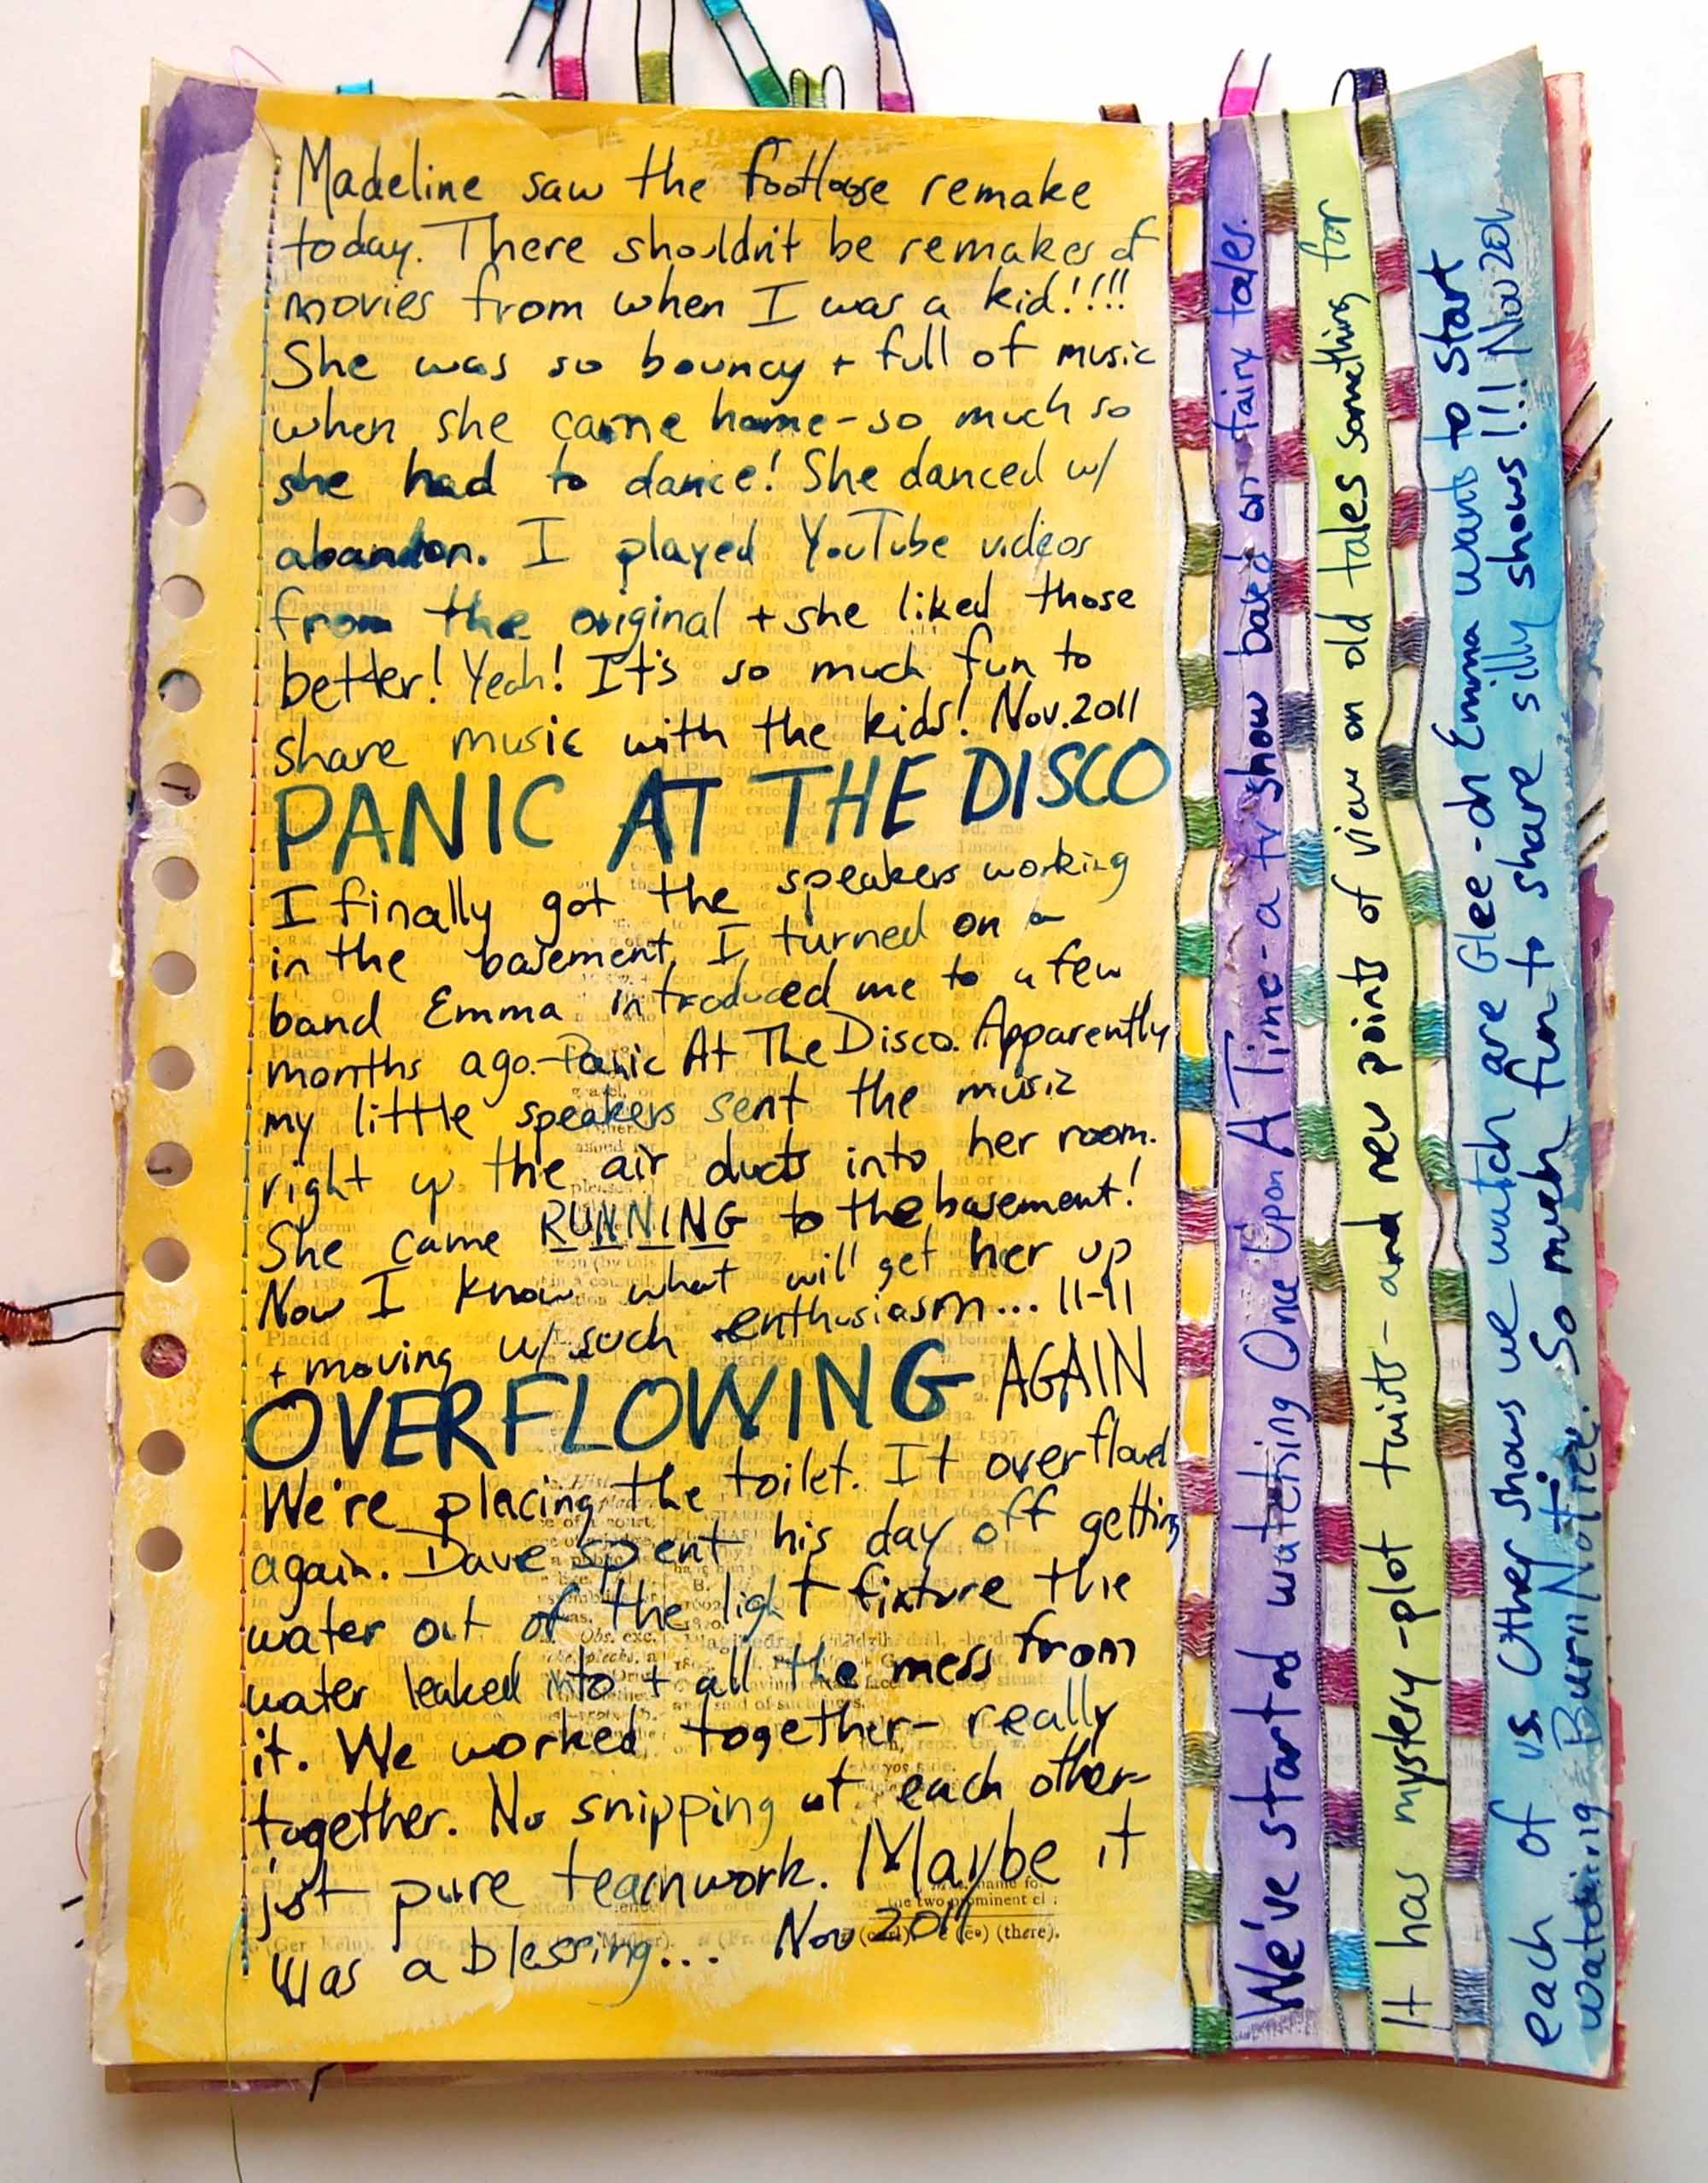 Madeline saw the footloose remake
today. There shouldn't be remakes of
movies from when I was a kid!!!!
She was so bouncy + full of music
when she came home - so much so
she had to dance! She danced w/
abandon. I played YouTube videos
from the original + she liked those
better! Yeah! It's so much fun to
share music with the kids! Nov. 2011
PANIC AT THE DISCO
I finally got the speakers working
in the basement. I turned on a
band Emma introduced me to a few
months ago - Panic At The Disco. Apparently
my little speakers sent the music
right up the air ducts into her room.
She came RUNNING to the basement!
Now I know what will get her up
+ moving w/ such enthusiasm... 11-11
OVERFLOWING AGAIN
We're placing the toilet. It overflowed
again. Dave spent his day off getting
water out of the light fixture the
water leaked into + all the mess from
it. We worked together - really
together. No snipping at each other -
just pure teamwork. Maybe it
was a blessing... Nov 2011
We've started watching Once Upon A Time - a tv show based on fairy tales.
It has mystery - plot twists - and new points of view on old tales something for
each of us. Other shows we watch are Glee - oh Emma wants to start
watching Burn Notice. So much fun to share silly shows!!! Nov 201